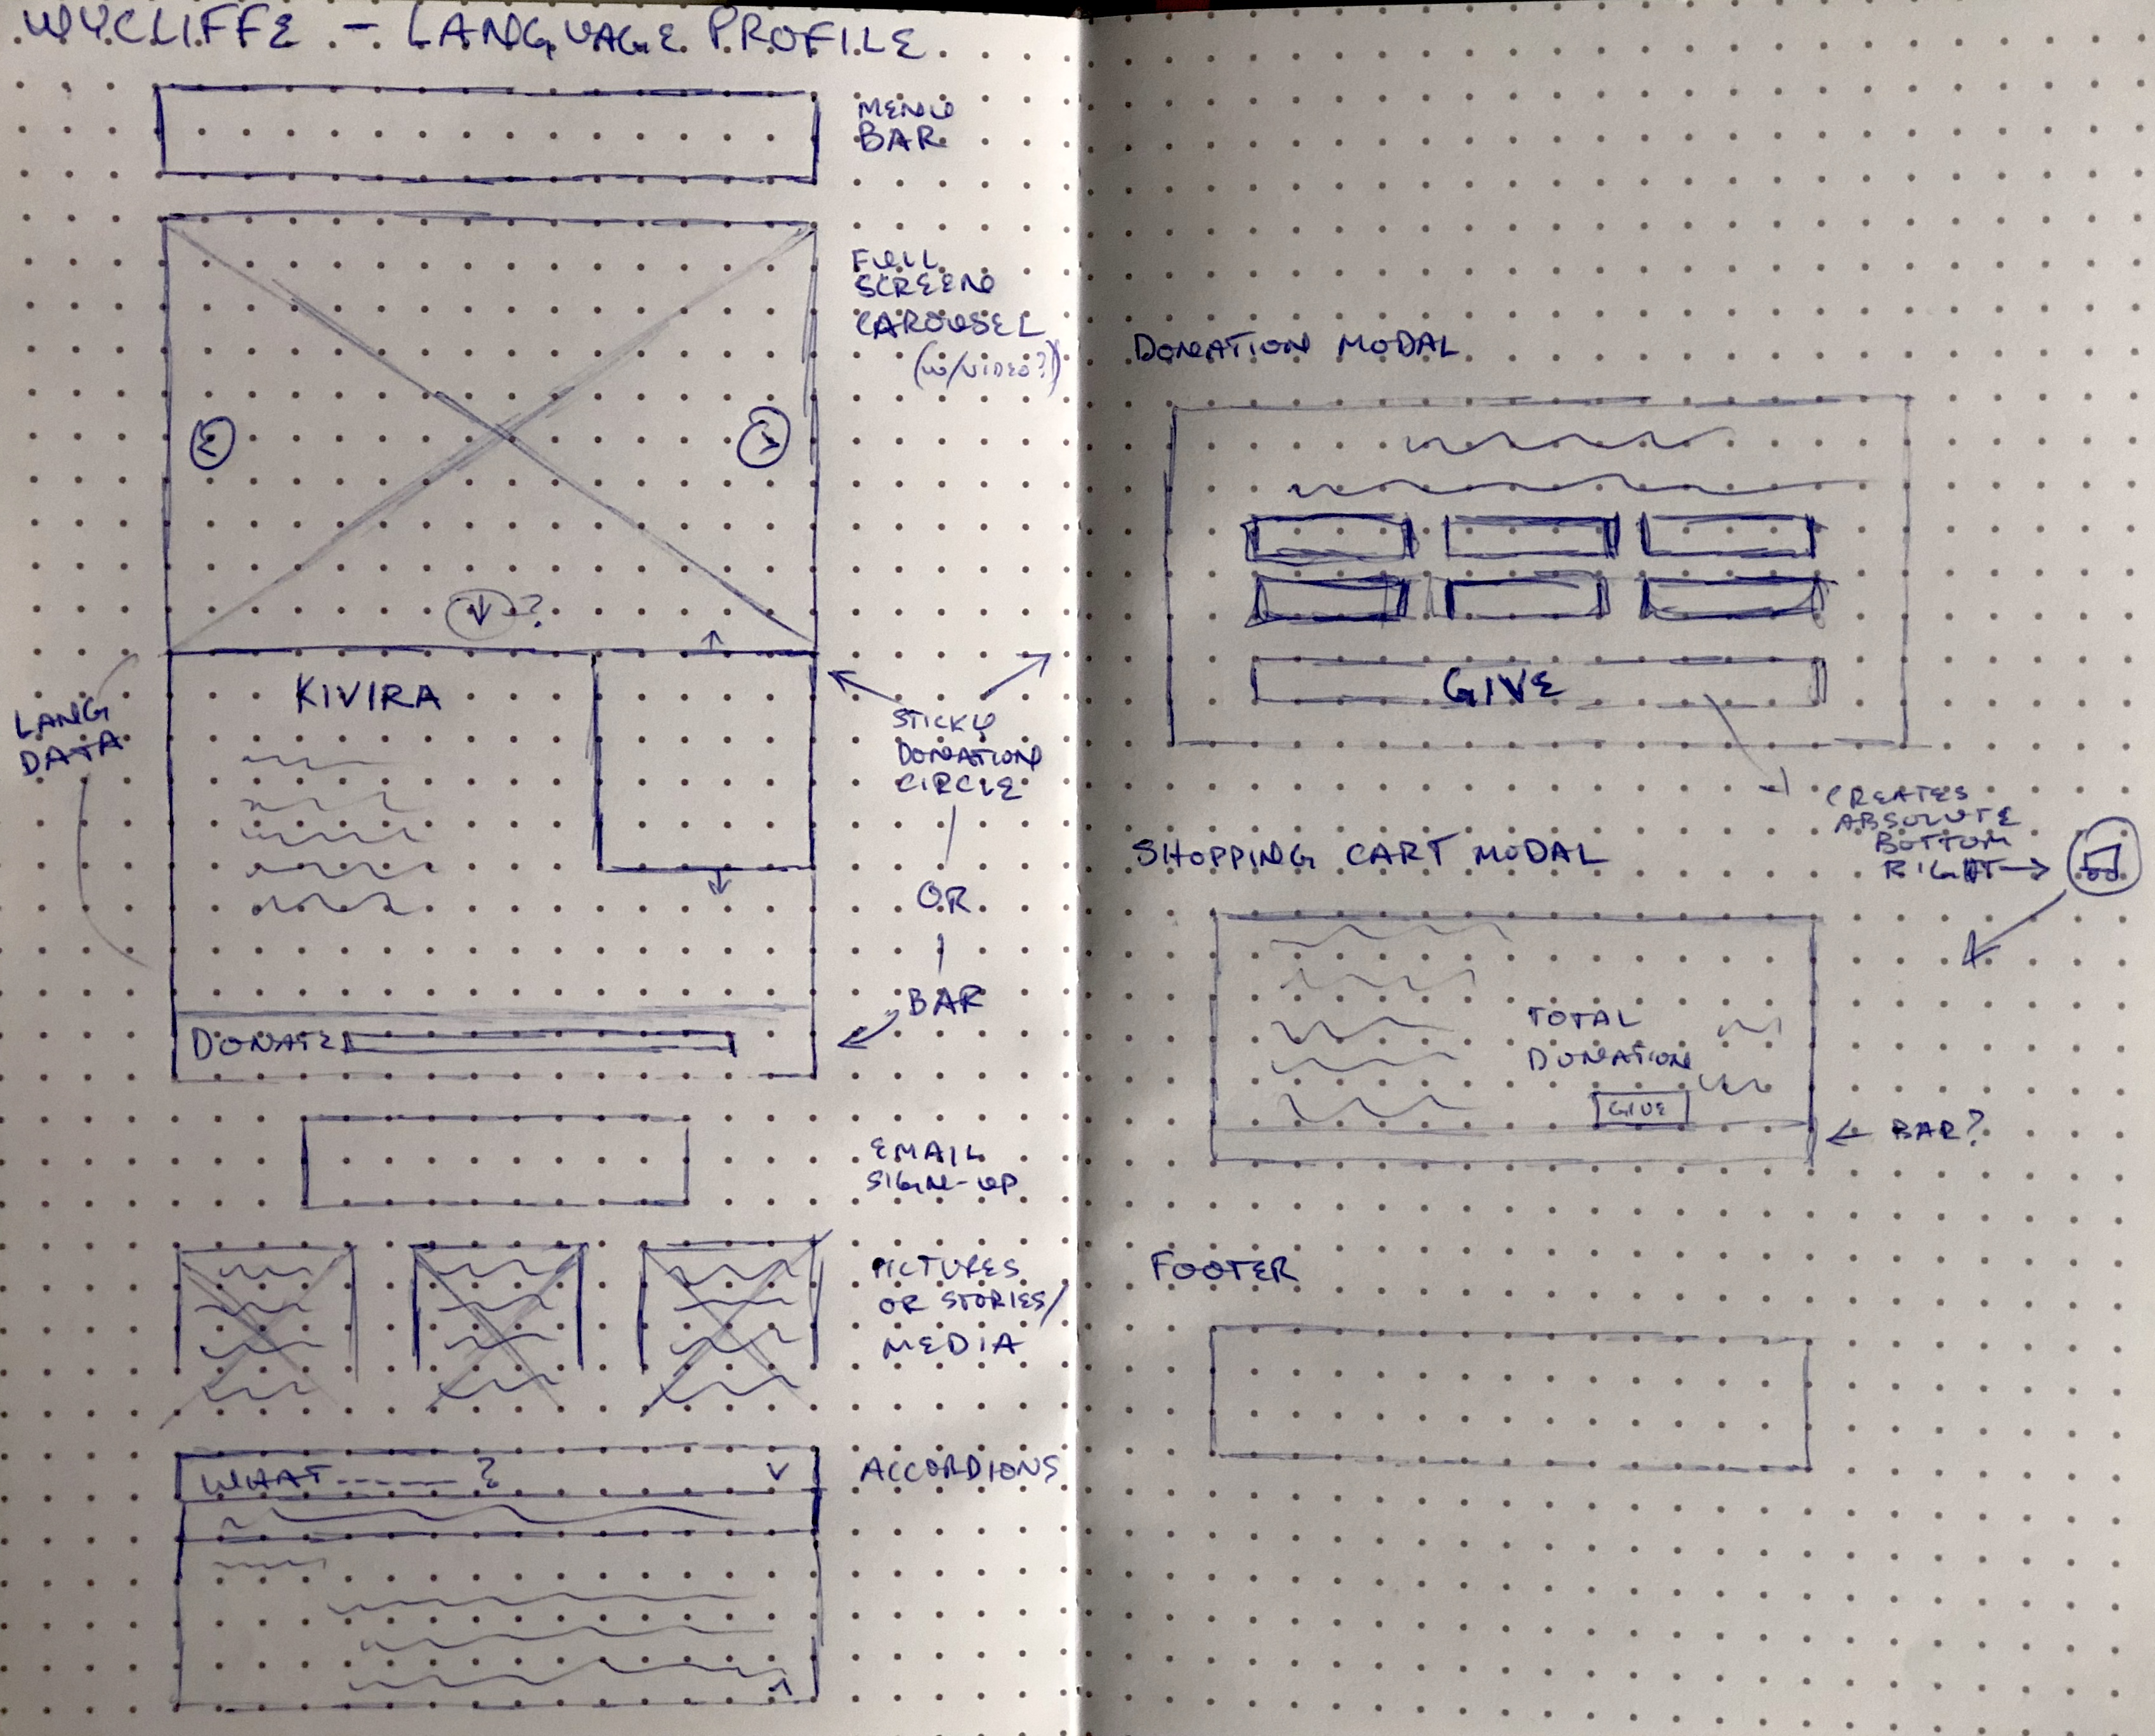 WYCLIFFE - LANGUAGE PROFILE
MENU
BAR
FULL
SCREEN
CAROUSEL
(W/VIDEO?)
<
>
↓ ?
LANG
DATA
KIVIRA
STICKY
DONATION
CIRCLE
OR
BAR
DONATE
EMAIL
SIGN-UP
PICTURES
OR STORIES/
MEDIA
WHAT ------ ?
ACCORDIONS
DONATION MODAL
GIVE
CREATES
ABSOLUTE
BOTTOM
RIGHT →
SHOPPING CART MODAL
TOTAL
DONATION
GIVE
← BAR?
FOOTER